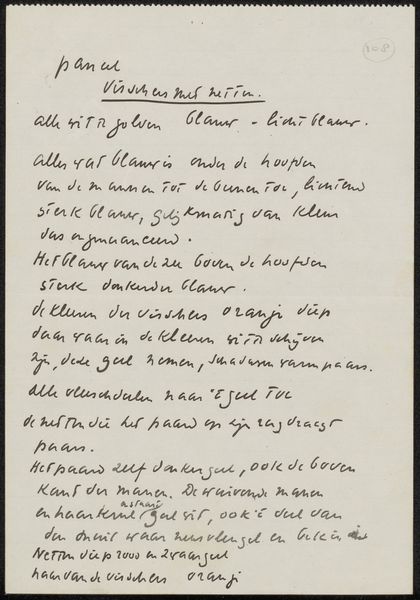 208
paneel
Visschers met netten.
alle witte golven blauw - licht blauw.
alles wat blauw is onder de hoofden
van de mannen tot de beenen toe, lichtend
sterk blauw, gelijkmatig van kleur
dus ongenuanceerd.
Het blauw van de zee boven de hoofden
sterk donkerder blauw.
de kleuren der visschers oranje diep
daar waar in de kleuren witte schijven
zijn, deze geel nemen, schaduwen warm paars.
alle vleeschdeelen naar 't geel toe
de netten die het paard op zijn rug draagt
paars.
Het paard zelf donkergeel, ook de boven
kant der manen. De waaiende manen
en haar geel wit, ook 't deel van
den snuit waar neusvleugel en bek
Netten diep rood en zwaar geel
haar van de visschers oranje